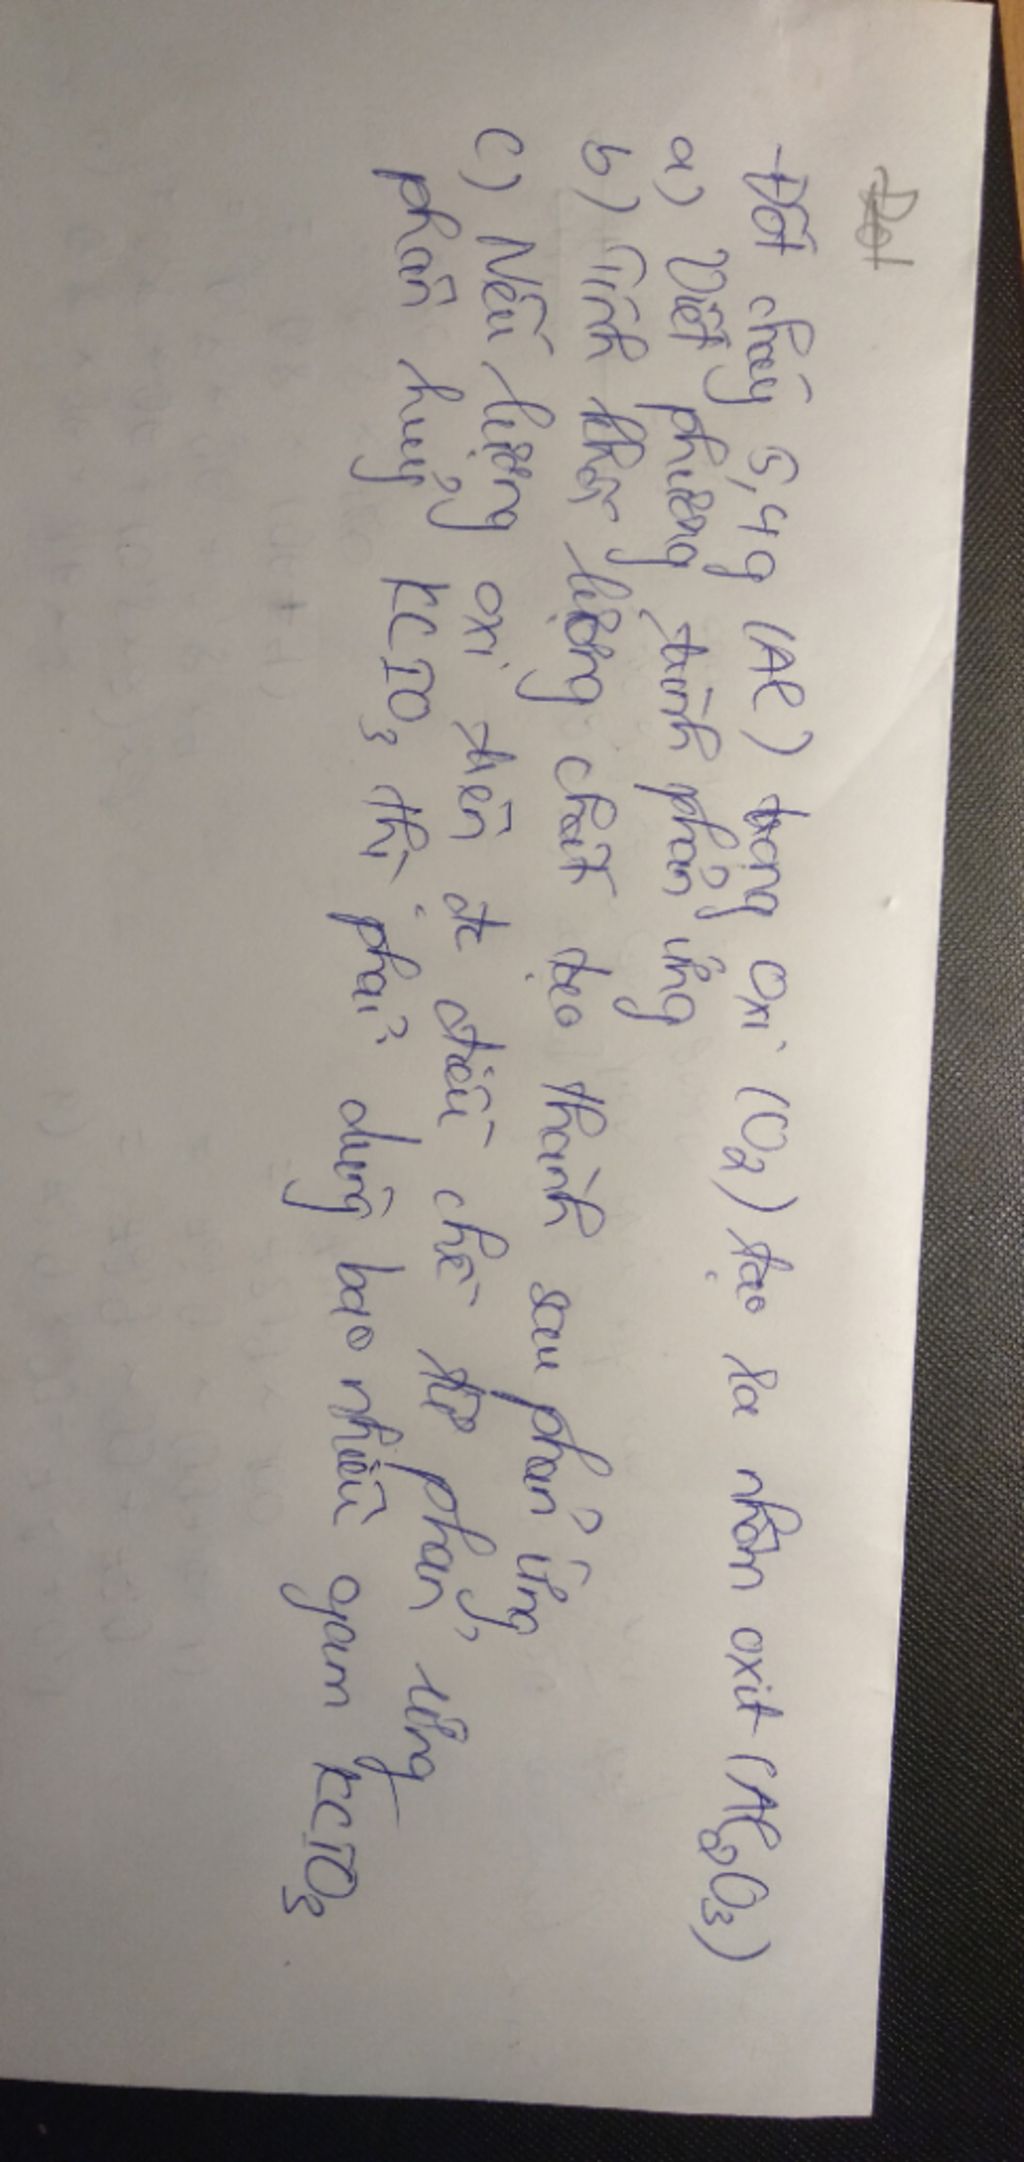 Đốt
Đốt cháy 5,4g (Al) trong oxi (O2) tạo ra nhôm oxit (Al2O3)
a) Viết phương trình phản ứng
b) Tính khối lượng chất tạo thành sau phản ứng
c) Nếu lượng oxi trên đc điều chế từ phản ứng
phân huỷ KClO3 thì phải dùng bao nhiêu gam KClO3